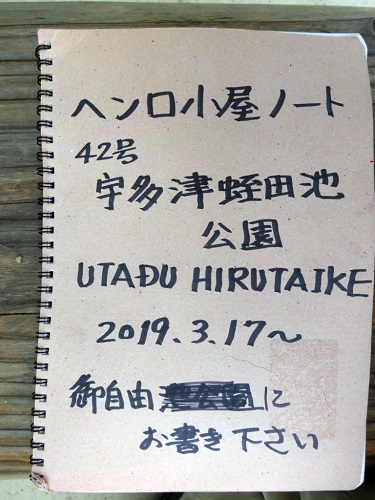 ヘンロ小屋ノート
42号
宇多津蛭田池
公園
UTADU HIRUTAIKE
2019.3.17～
御自由に
お書き下さい